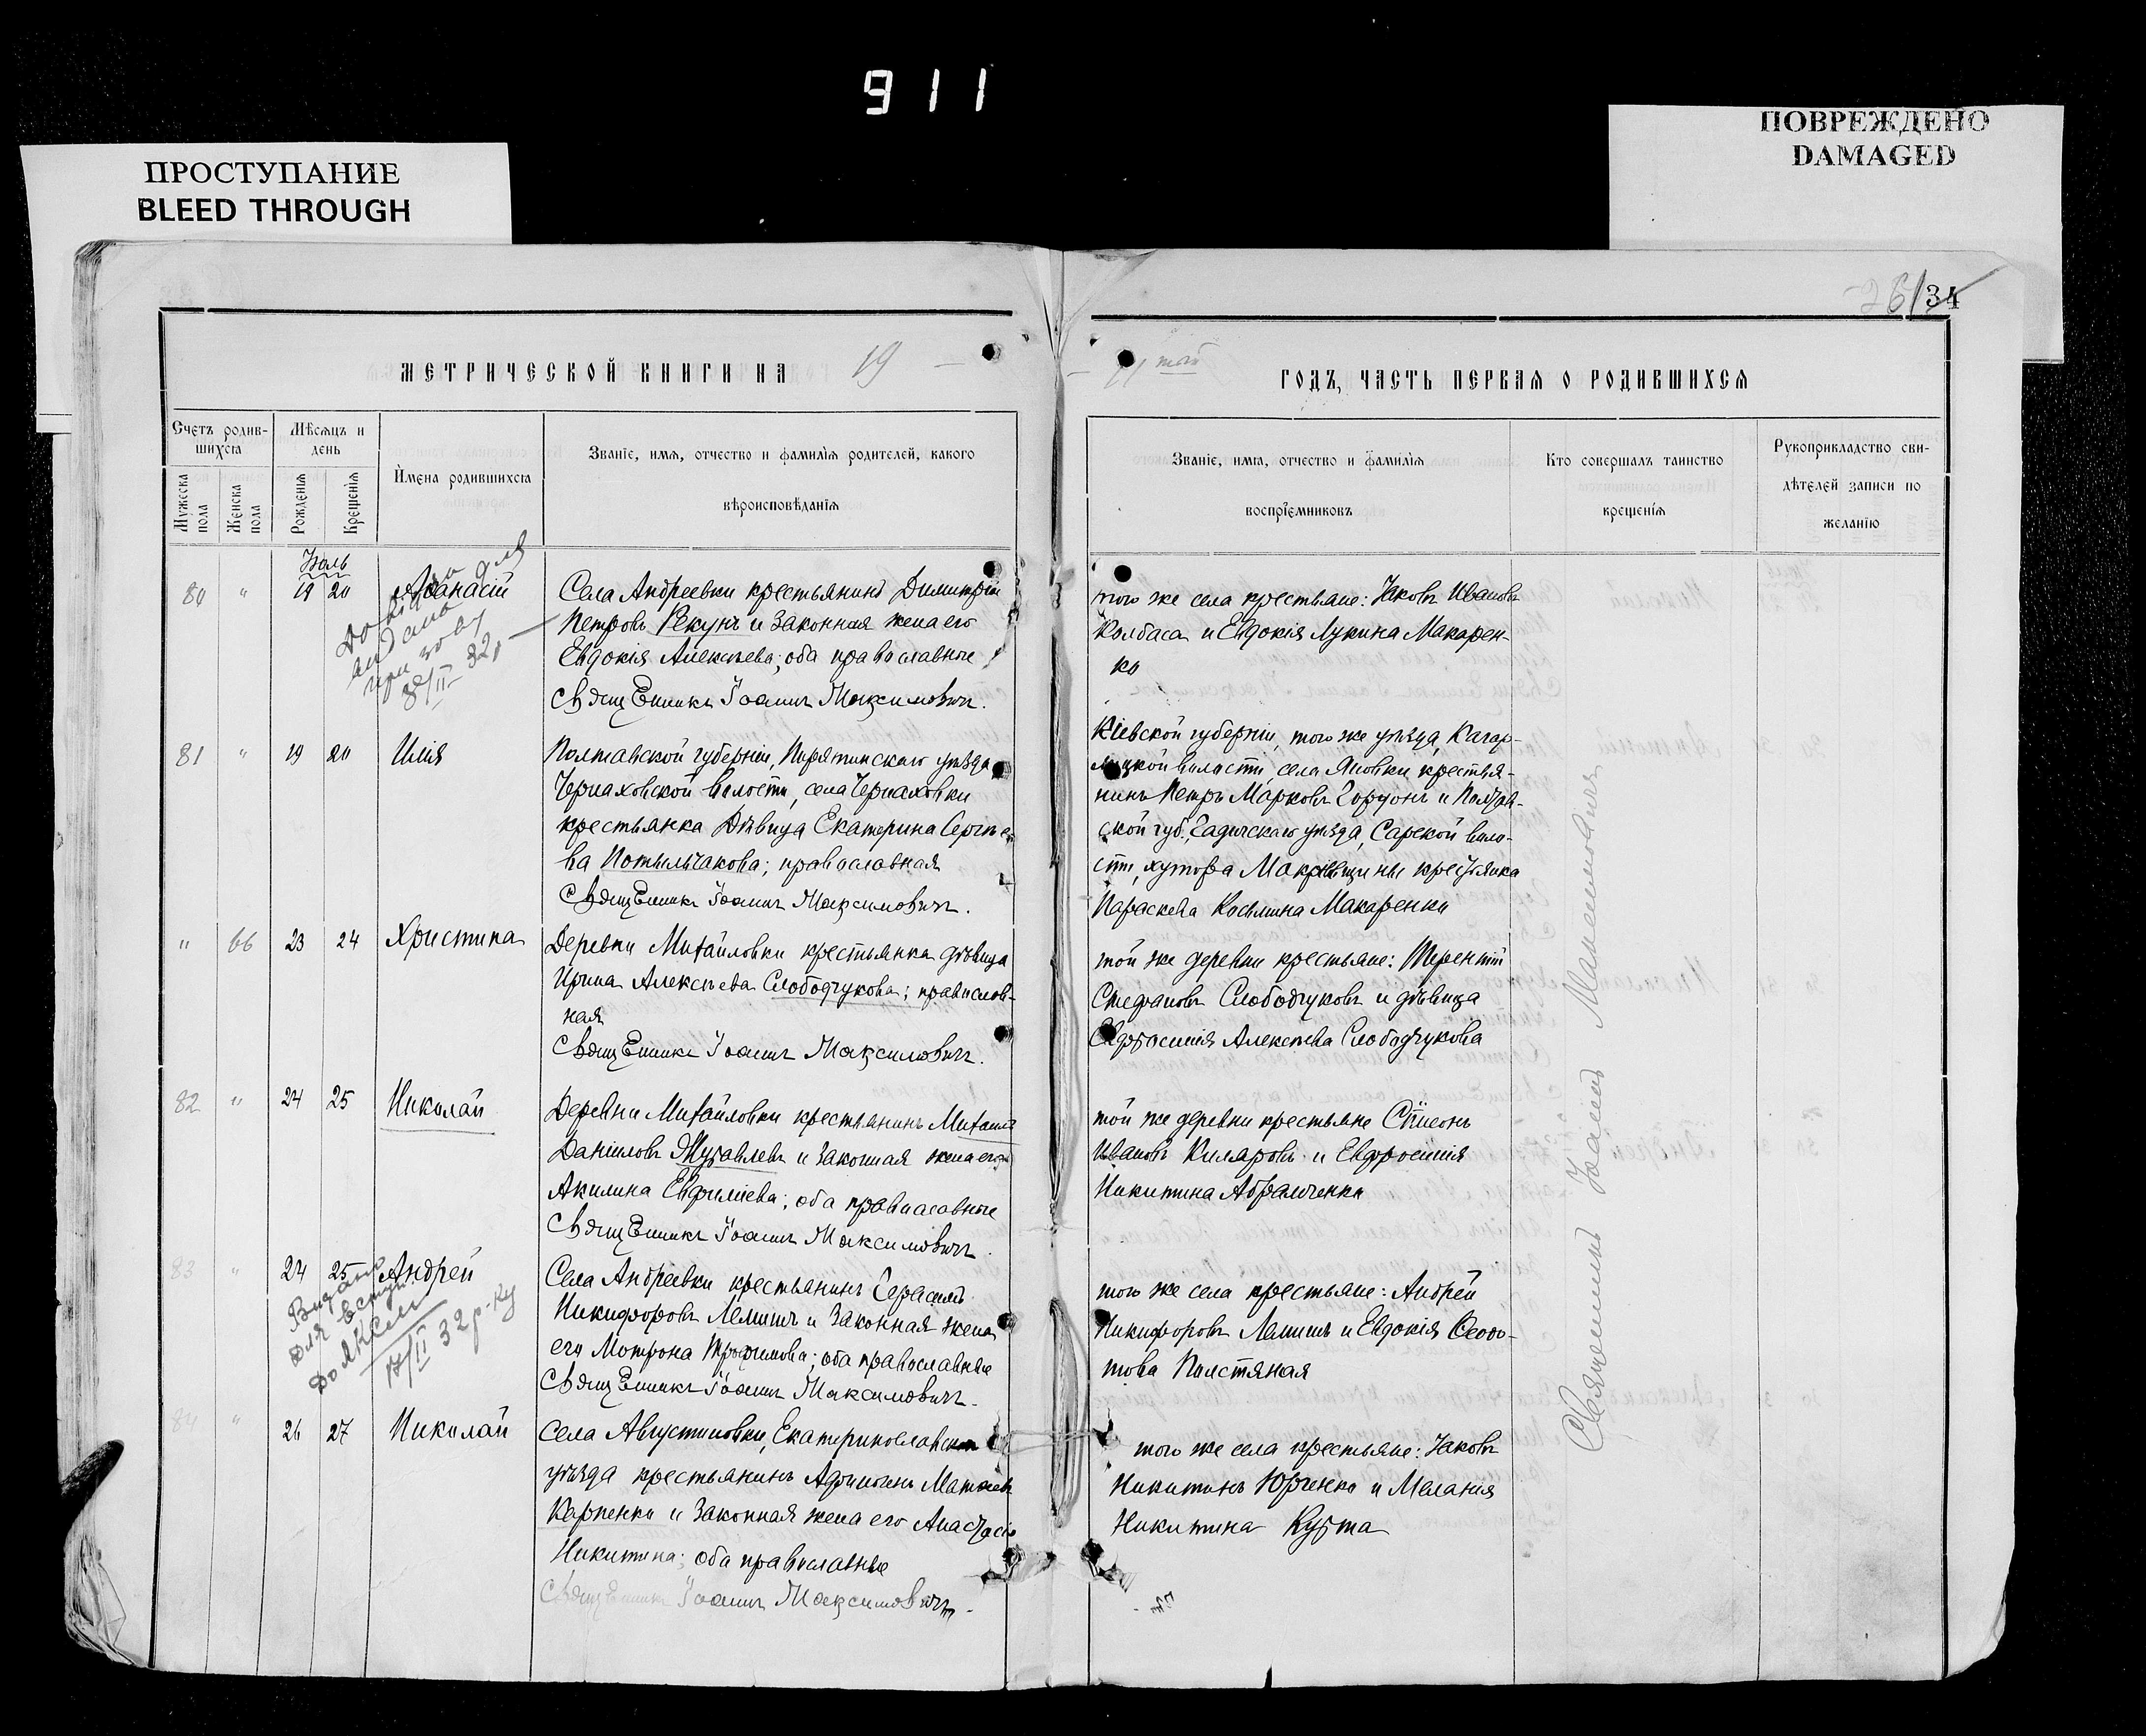 911
ПРОСТУПАНИЕ
BLEED THROUGH
ПОВРЕЖДЕНО
DAMAGED
26/34
МЕТРИЧЕСКОЙ КНИГИ НА 19
Счетъ родив-
шихсѧ
Мѣсѧцъ и
день
Мужеска
пола
Женска
пола
Рожденїѧ
Крещенїѧ
Имена родившихсѧ
Званїе, имѧ, отчество и фамилїѧ родителей, какого
вѣроисповѣданїѧ
Іюль
80 " 19 20 Аѳанасій
Села Андреевки крестьянинъ Димитрій
Петровъ Рекунъ и законная жена его
Евдокія Алексѣева; оба православные
Священникъ Іоаннъ Максимовичъ.
81 " 19 20 Илія
Полтавской губерніи, Пирятинскаго уѣзда
Черняховской волости, села Черняховки
крестьянка дѣвица Екатерина Сергѣе
ва Потыльчакова; православная
Священникъ Іоаннъ Максимовичъ.
" 66 23 24 Христина
Деревни Михайловки крестьянка дѣвица
Ирина Алексѣева Слободчукова; православ-
ная
Священникъ Іоаннъ Максимовичъ.
82 " 24 25 Николай
Деревни Михайловки крестьянинъ Михаилъ
Даніиловъ Журавлевъ и законная жена его
Акилина Евфиміева; оба православные
Священникъ Іоаннъ Максимовичъ.
83 " 24 25 Андрей
Видано
для вступу
до
17/II 32 р-ку
Села Андреевки крестьянинъ Герасимъ
Никифоровъ Лемишъ и законная жена
его Мотрона Трофимова; оба православные
Священникъ Іоаннъ Максимовичъ.
84 " 26 27 Николай
Села Августиновки, Екатеринославскаго
уѣзда крестьянинъ Матѳіевъ
Карпенко и законная жена его Анастасія
Никитина; оба православные
Священникъ Іоаннъ Максимовичъ.
11
ГОДЪ, ЧАСТЬ ПЕРВАѦ О РОДИВШИХСѦ
Званїе, имѧ, отчество и фамилїѧ
воспрїемниковъ
Кто совершалъ таинство
крещенїѧ
Рукоприкладство сви-
дѣтелей записи по
желанїю
того же села крестьяне: Іаковъ Ивановъ
Колбаса и Евдокія Лукина Макарен-
ко
Кіевской губерніи, того же уѣзда, Кагар-
лицкой волости, села Яновки крестья-
нинъ Петръ Марковъ и Полтав-
ской губ. Гадячскаго уѣзда, Сарской воло-
сти, хутора крестьянка
Параскева Косьмина Макаренко
той же деревни крестьяне: Терентій
Стефановъ Слободчуковъ и дѣвица
Евфросинія Алексѣева Слободчукова
той же деревни крестьяне
Ивановъ и Евфросинія
Никитина Абрамченко
того же села крестьяне: Андрей
Никифоровъ Лемишъ и Евдокія Ѳеодо-
това
того же села крестьяне: Іаковъ
Никитинъ Юрченко и Меланія
Никитина Курта
Священникъ Іоаннъ Максимовичъ